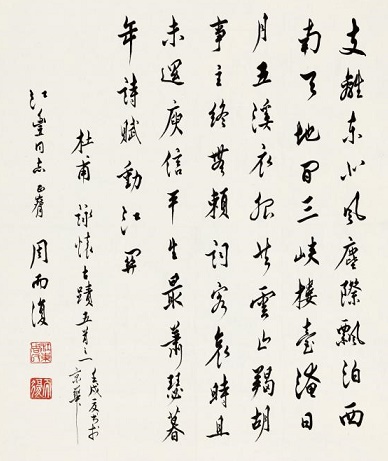 支離東北風塵際飄泊西
南天地間三峽樓臺淹日
月五溪衣服共雲山羯胡
事主終無賴詞客哀時且
未還庾信平生最蕭瑟暮
年詩賦動江關
杜甫詠懷古蹟五首之一
壬戌夏書於
京華
江豐同志正腕
周而復